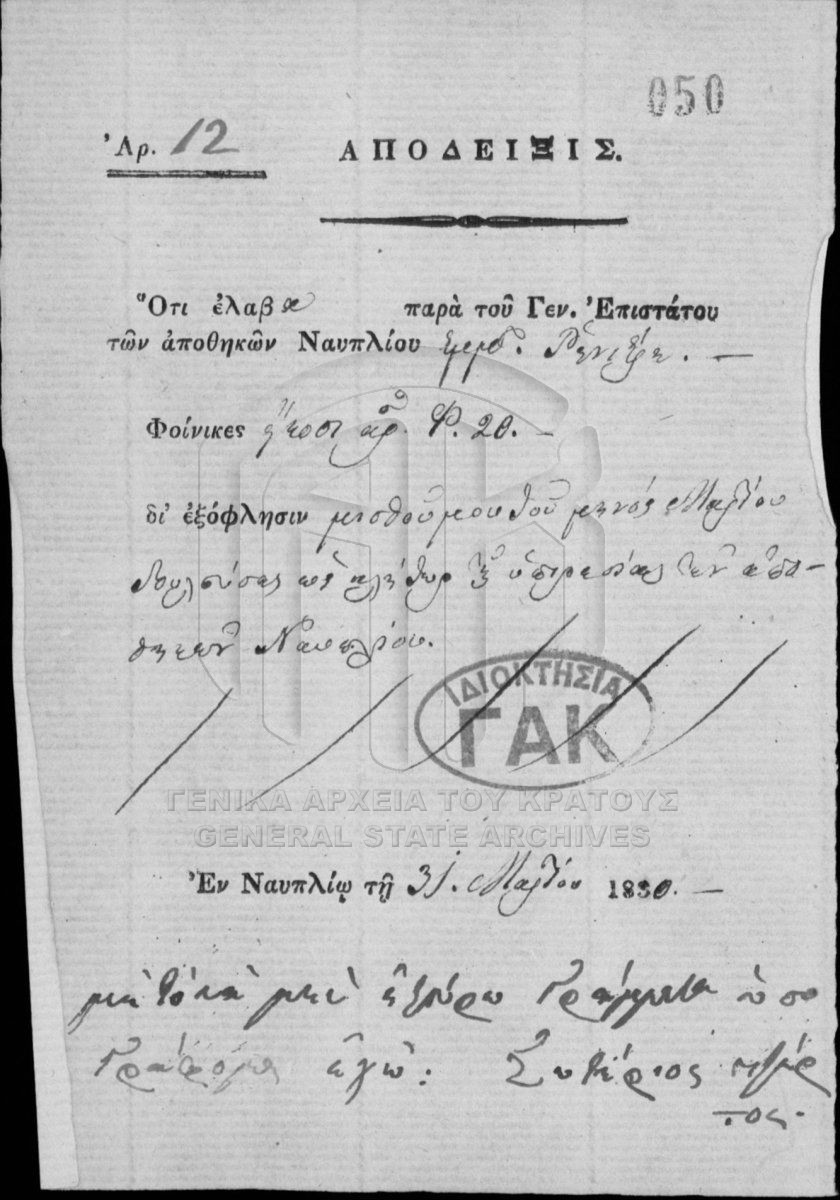 050
Ἀρ. 12
ΑΠΟΔΕΙΞΙΣ.
Ὅτι ἐλαβα παρὰ τοῦ Γεν. Ἐπιστάτου
τῶν ἀποθηκῶν Ναυπλίου Ἐμμ. Ῥενιέρη. —
Φοίνικες εἴκοσι ἀρ. Φ. 20. —
δι' ἐξόφλησιν μισθοῦ μου τοῦ μηνός Μαρτίου
ὡς ὑπηρεσίας τῶν ἀπο-
θηκῶν Ναυπλίου.
ΙΔΙΟΚΤΗΣΙΑ
ΓΑΚ
ΓΕΝΙΚΑ ΑΡΧΕΙΑ ΤΟΥ ΚΡΑΤΟΥΣ
GENERAL STATE ARCHIVES
Ἐν Ναυπλίῳ τῇ 31. Μαρτίου 1830. —
μὲ τὸ νὰ μὴν ἠξεύρω γράμματα
ἐγὼ: Σωτήριος